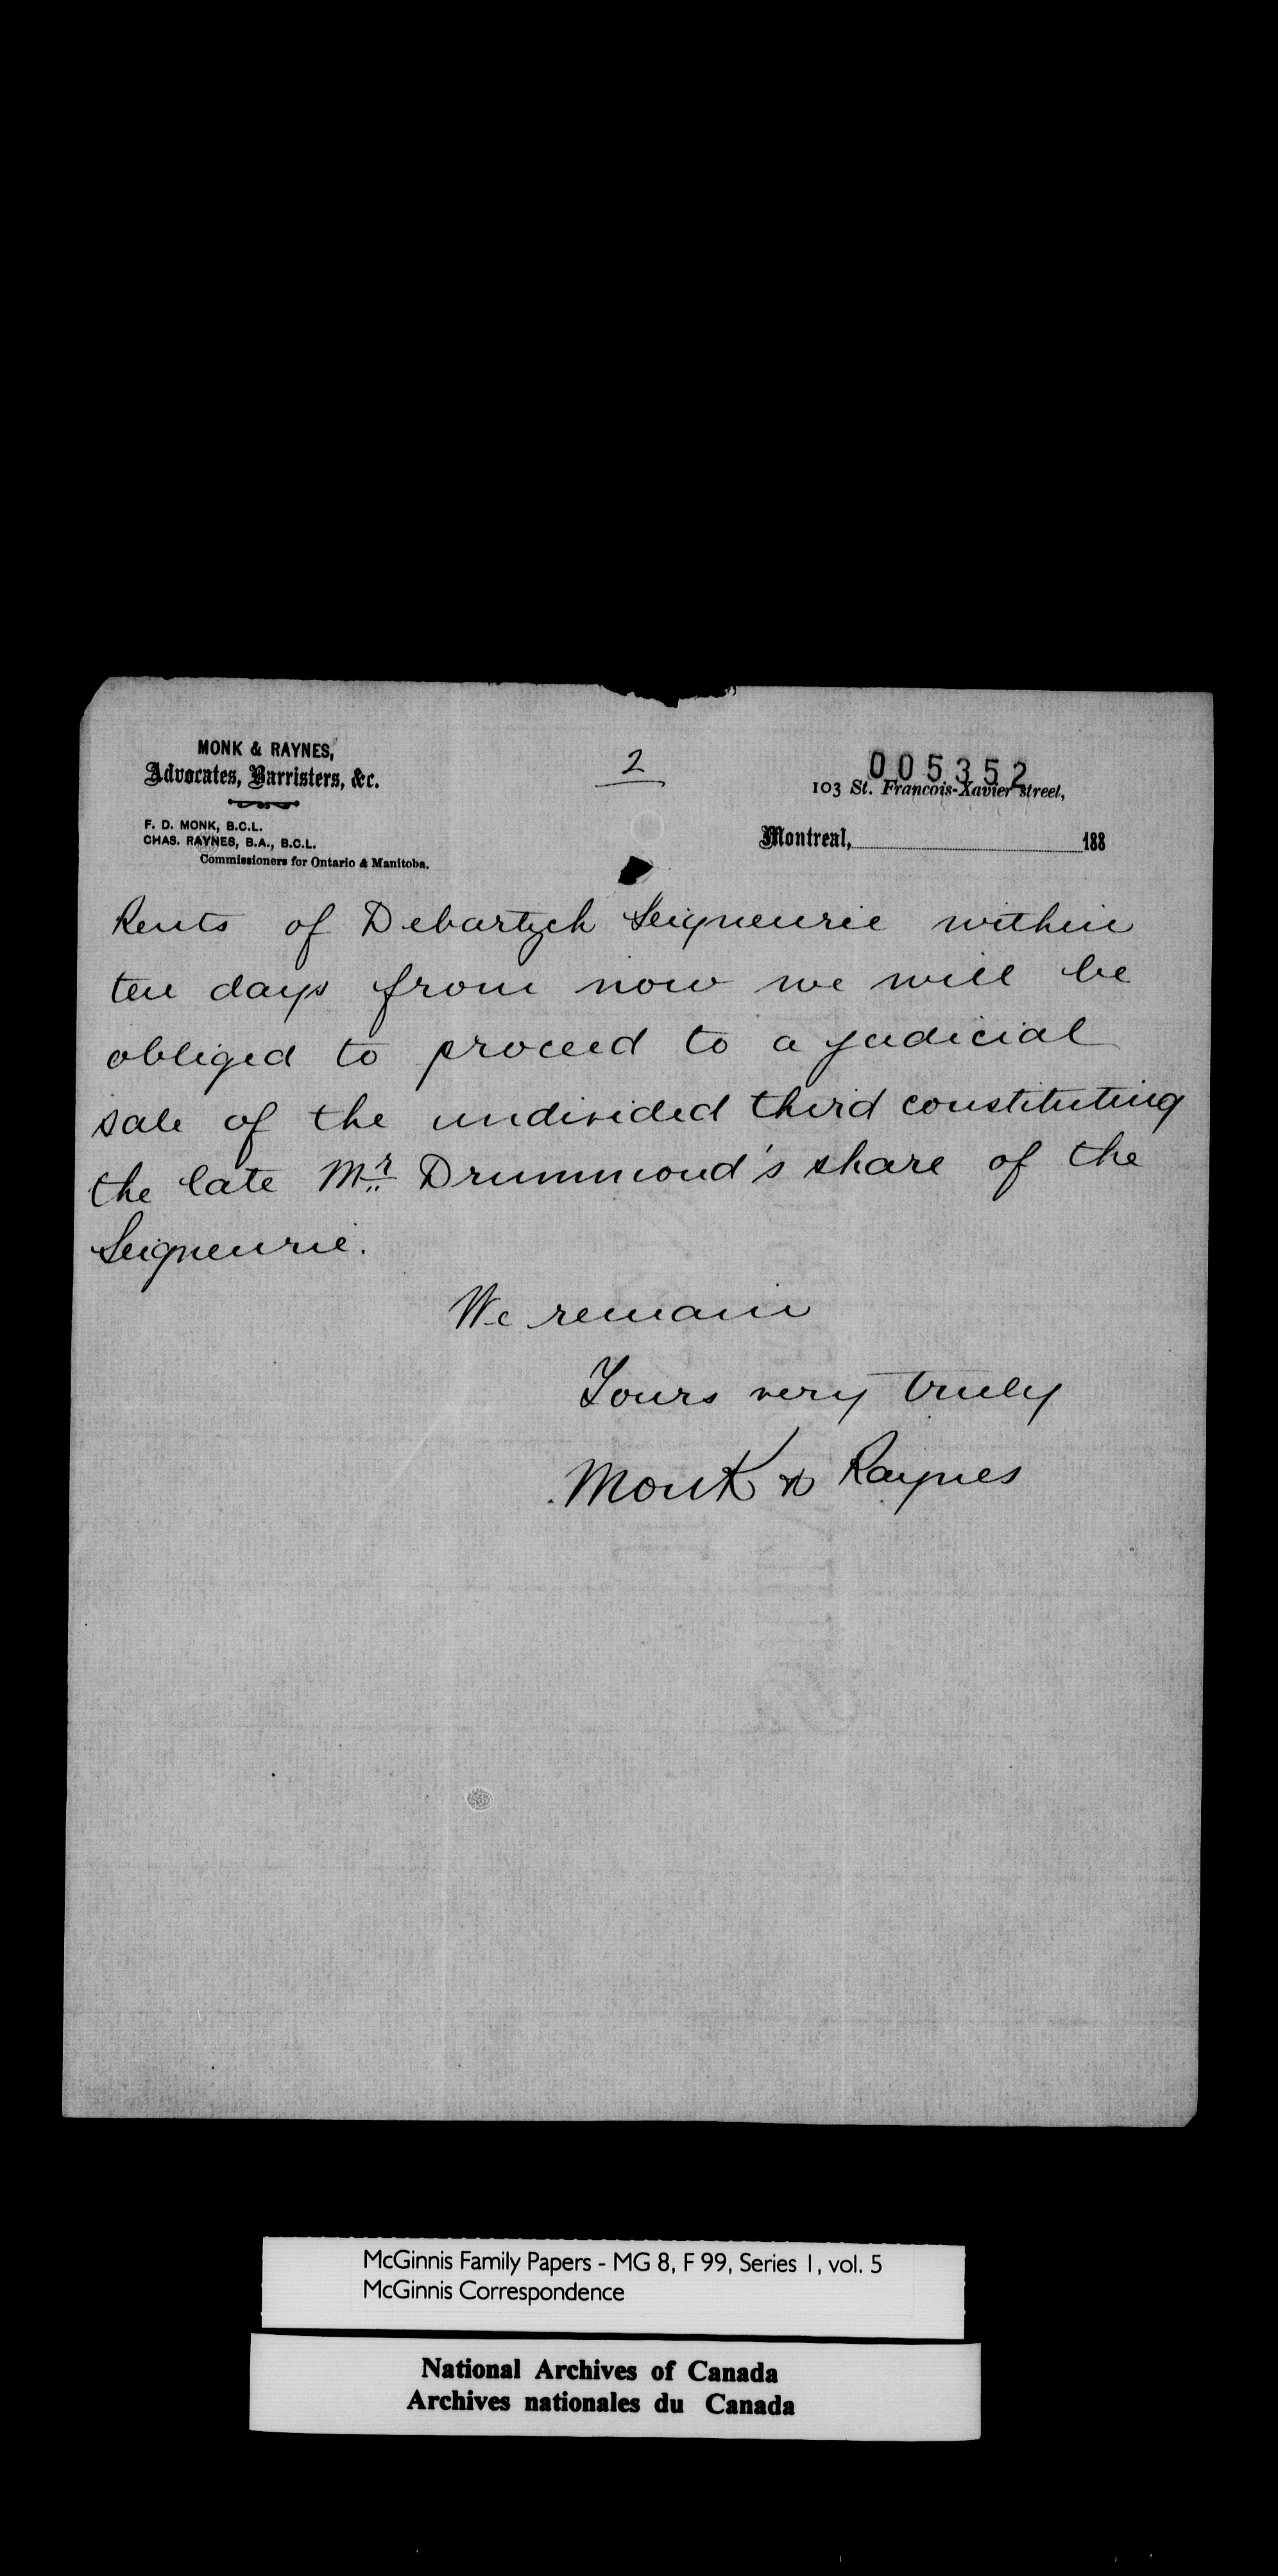 MONK & RAYNES,
Advocates, Barristers, &c.
F. D. MONK, B.C.L.
CHAS. RAYNES, B.A., B.C.L.
Commissioners for Ontario & Manitoba.
2
005352
103 St. Francois-Xavier street,
Montreal, 188
Rents of Debartzch Seigneurie within
ten days from now we will be
obliged to proceed to a judicial
sale of the undivided third constituting
the late Mr. Drummond's share of the
Seigneurie.
We remain
Yours very truly
Monk & Raynes
McGinnis Family Papers - MG 8, F 99, Series 1, vol. 5
McGinnis Correspondence
National Archives of Canada
Archives nationales du Canada